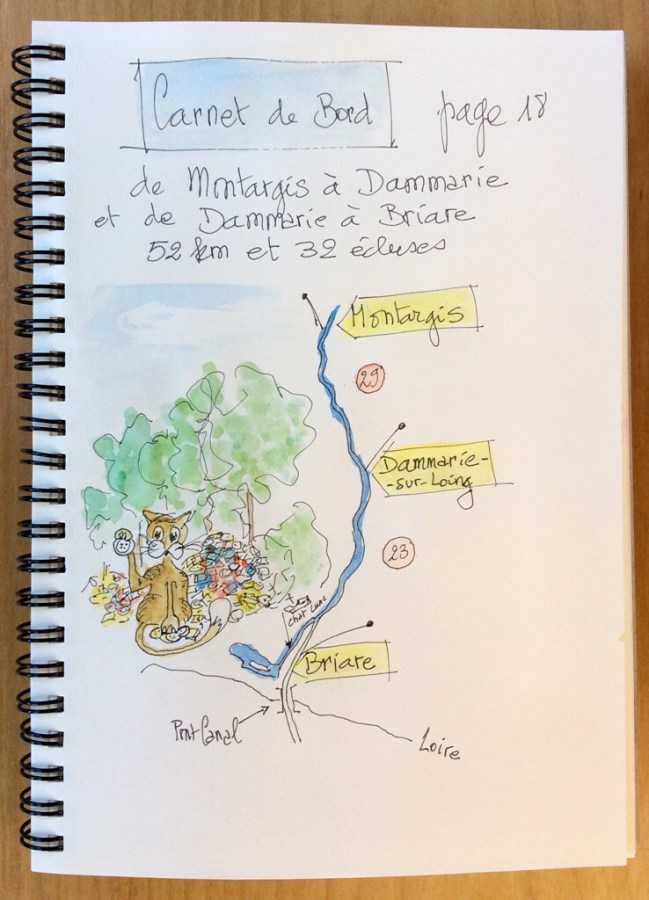 Carnet de Bord page 18
de Montargis à Dammarie
et de Dammarie à Briare
52 km et 32 écluses
Montargis
29
Dammarie-
-sur-Loing
23
chat
Briare
Pont Canal
Loire